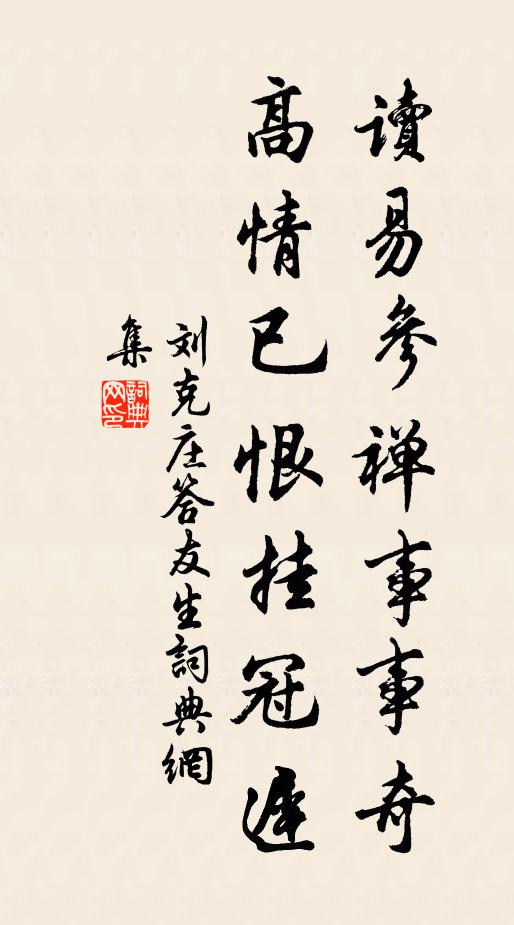 讀易參禅事事奇
高情已恨挂冠遲
刘克庄答友生詞典網
集
詞典网印